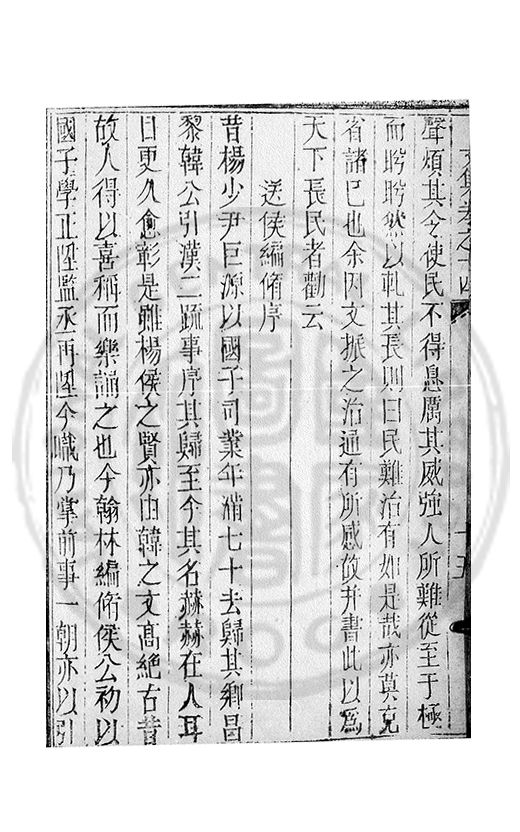 聲煩其令使民不得息厲其威強人所難從至于極
而盻盻然以軋其長則曰民難治有如是哉亦莫克
省諸巳也余因文振之治通有所感故并書此以爲
天下長民者勸云
送侯編脩序
昔楊少尹巨源以國子司業年滿七十去歸其鄉昌
黎韓公引漢二疏事序其歸至今其名赫赫在人耳
目更久愈彰是雖楊侯之賢亦由韓之文高絶古昔
故人得以喜稱而樂誦之也今翰林編脩侯公初以
國子學正陞監丞再陞今職乃掌前事一朝亦以引